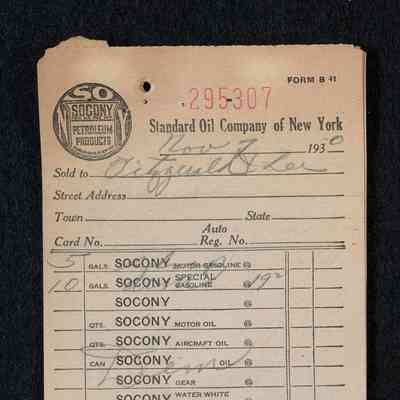 FORM B 41
SO
SOCONY
PETROLEUM
PRODUCTS
N Y
295307
Standard Oil Company of New York
Nov 7 1930
Sold to Fitzgerald & Lee
Street Address
Town State
Card No. Auto Reg. No.
5 GALS. SOCONY MOTOR GASOLINE @
10 GALS. SOCONY SPECIAL GASOLINE @ 19²
SOCONY @
QTS. SOCONY MOTOR OIL @
QTS. SOCONY AIRCRAFT OIL @
CAN SOCONY OIL @
SOCONY GEAR @
SOCONY WATER WHITE